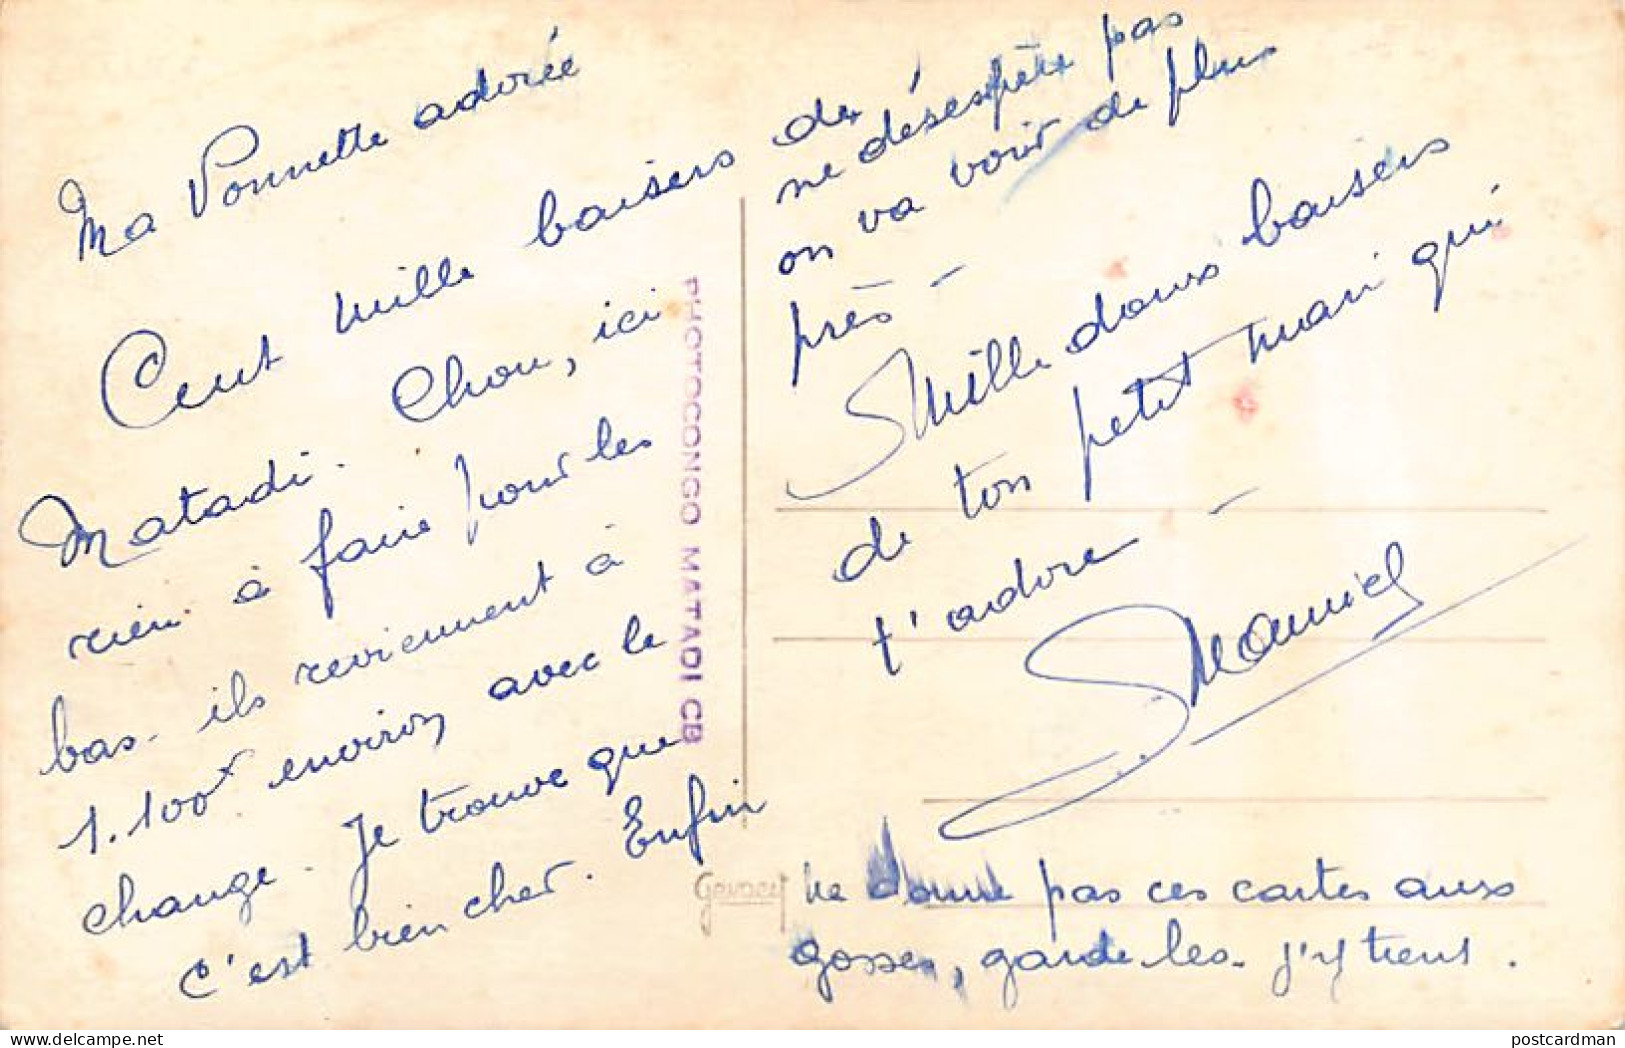 Ma Vonnette adorée
Cent mille baisers de
Matadi. Chou, ici
rien à faire pour les
bas. ils reviennent à
1.100f environ avec le
change. Je trouve que
c'est bien cher. Enfin
ne désespère pas
on va voir de plus
près -
Mille doux baisers
de ton petit mari qui
t'adore -
ne donne pas ces cartes aux
gosses, garde les. j'y tiens.
PHOTOCONGO MATADI CB
Gevaert
postcardman